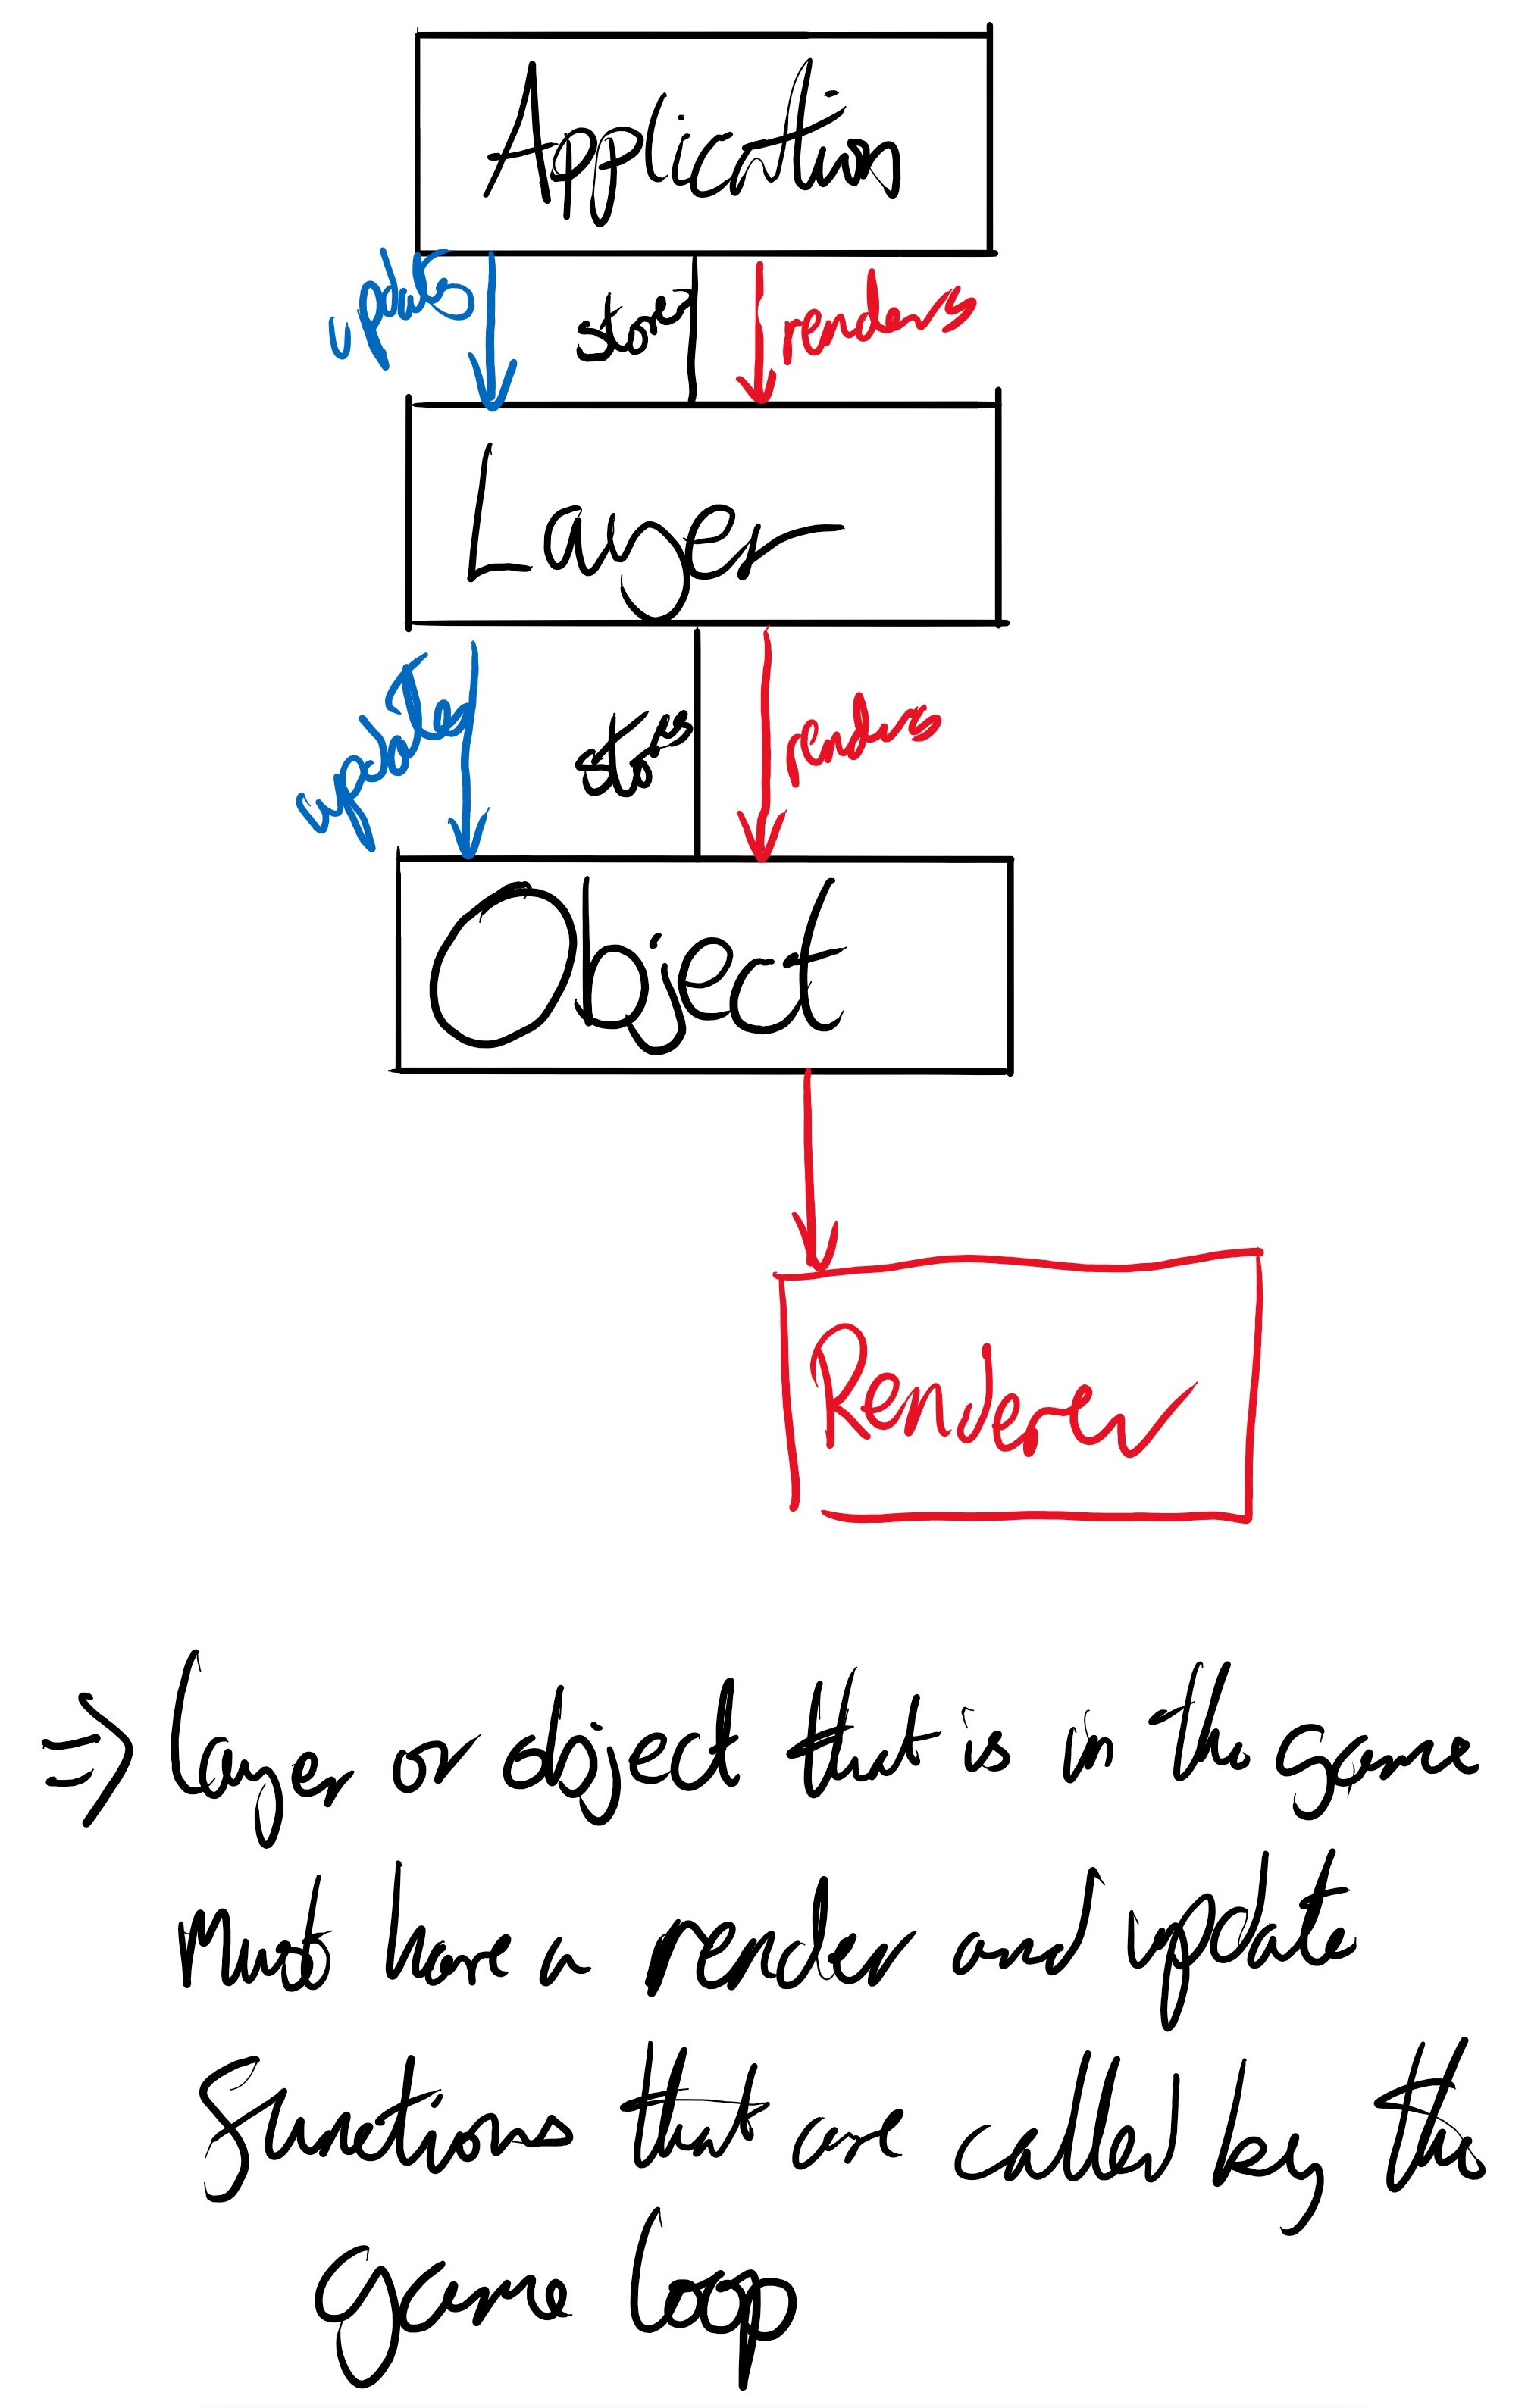 Application
updates stores renders
Layer
updates stores renders
Object
Renderer
⇒ Layer or object that is in the game
must have a render and update
functions that are called by the
game loop